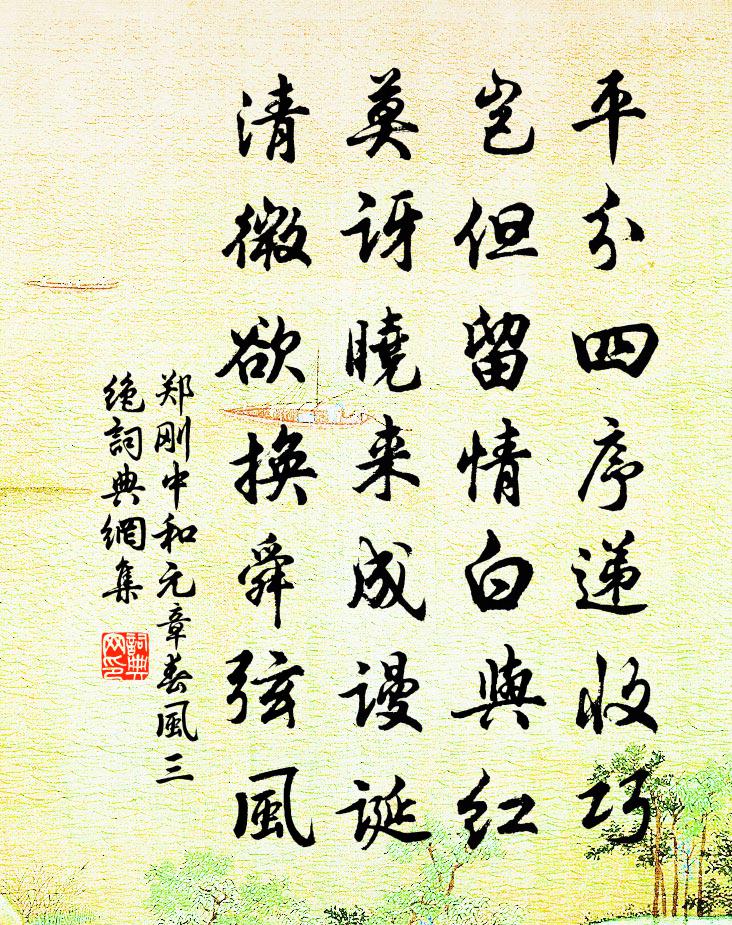 平分四序递收巧
岂但留情白與红
莫讶曉来成谩诞
清微欲换舜弦風
郑刚中和元章春風三
绝詞典網集
詞典網印